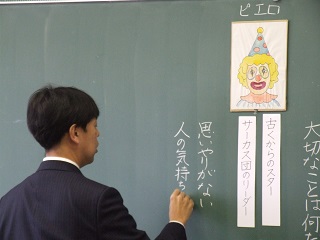 ピエロ
大切なことは何
古くからのスター
サーカス団のリーダー
思いやりがない
人の気持ち